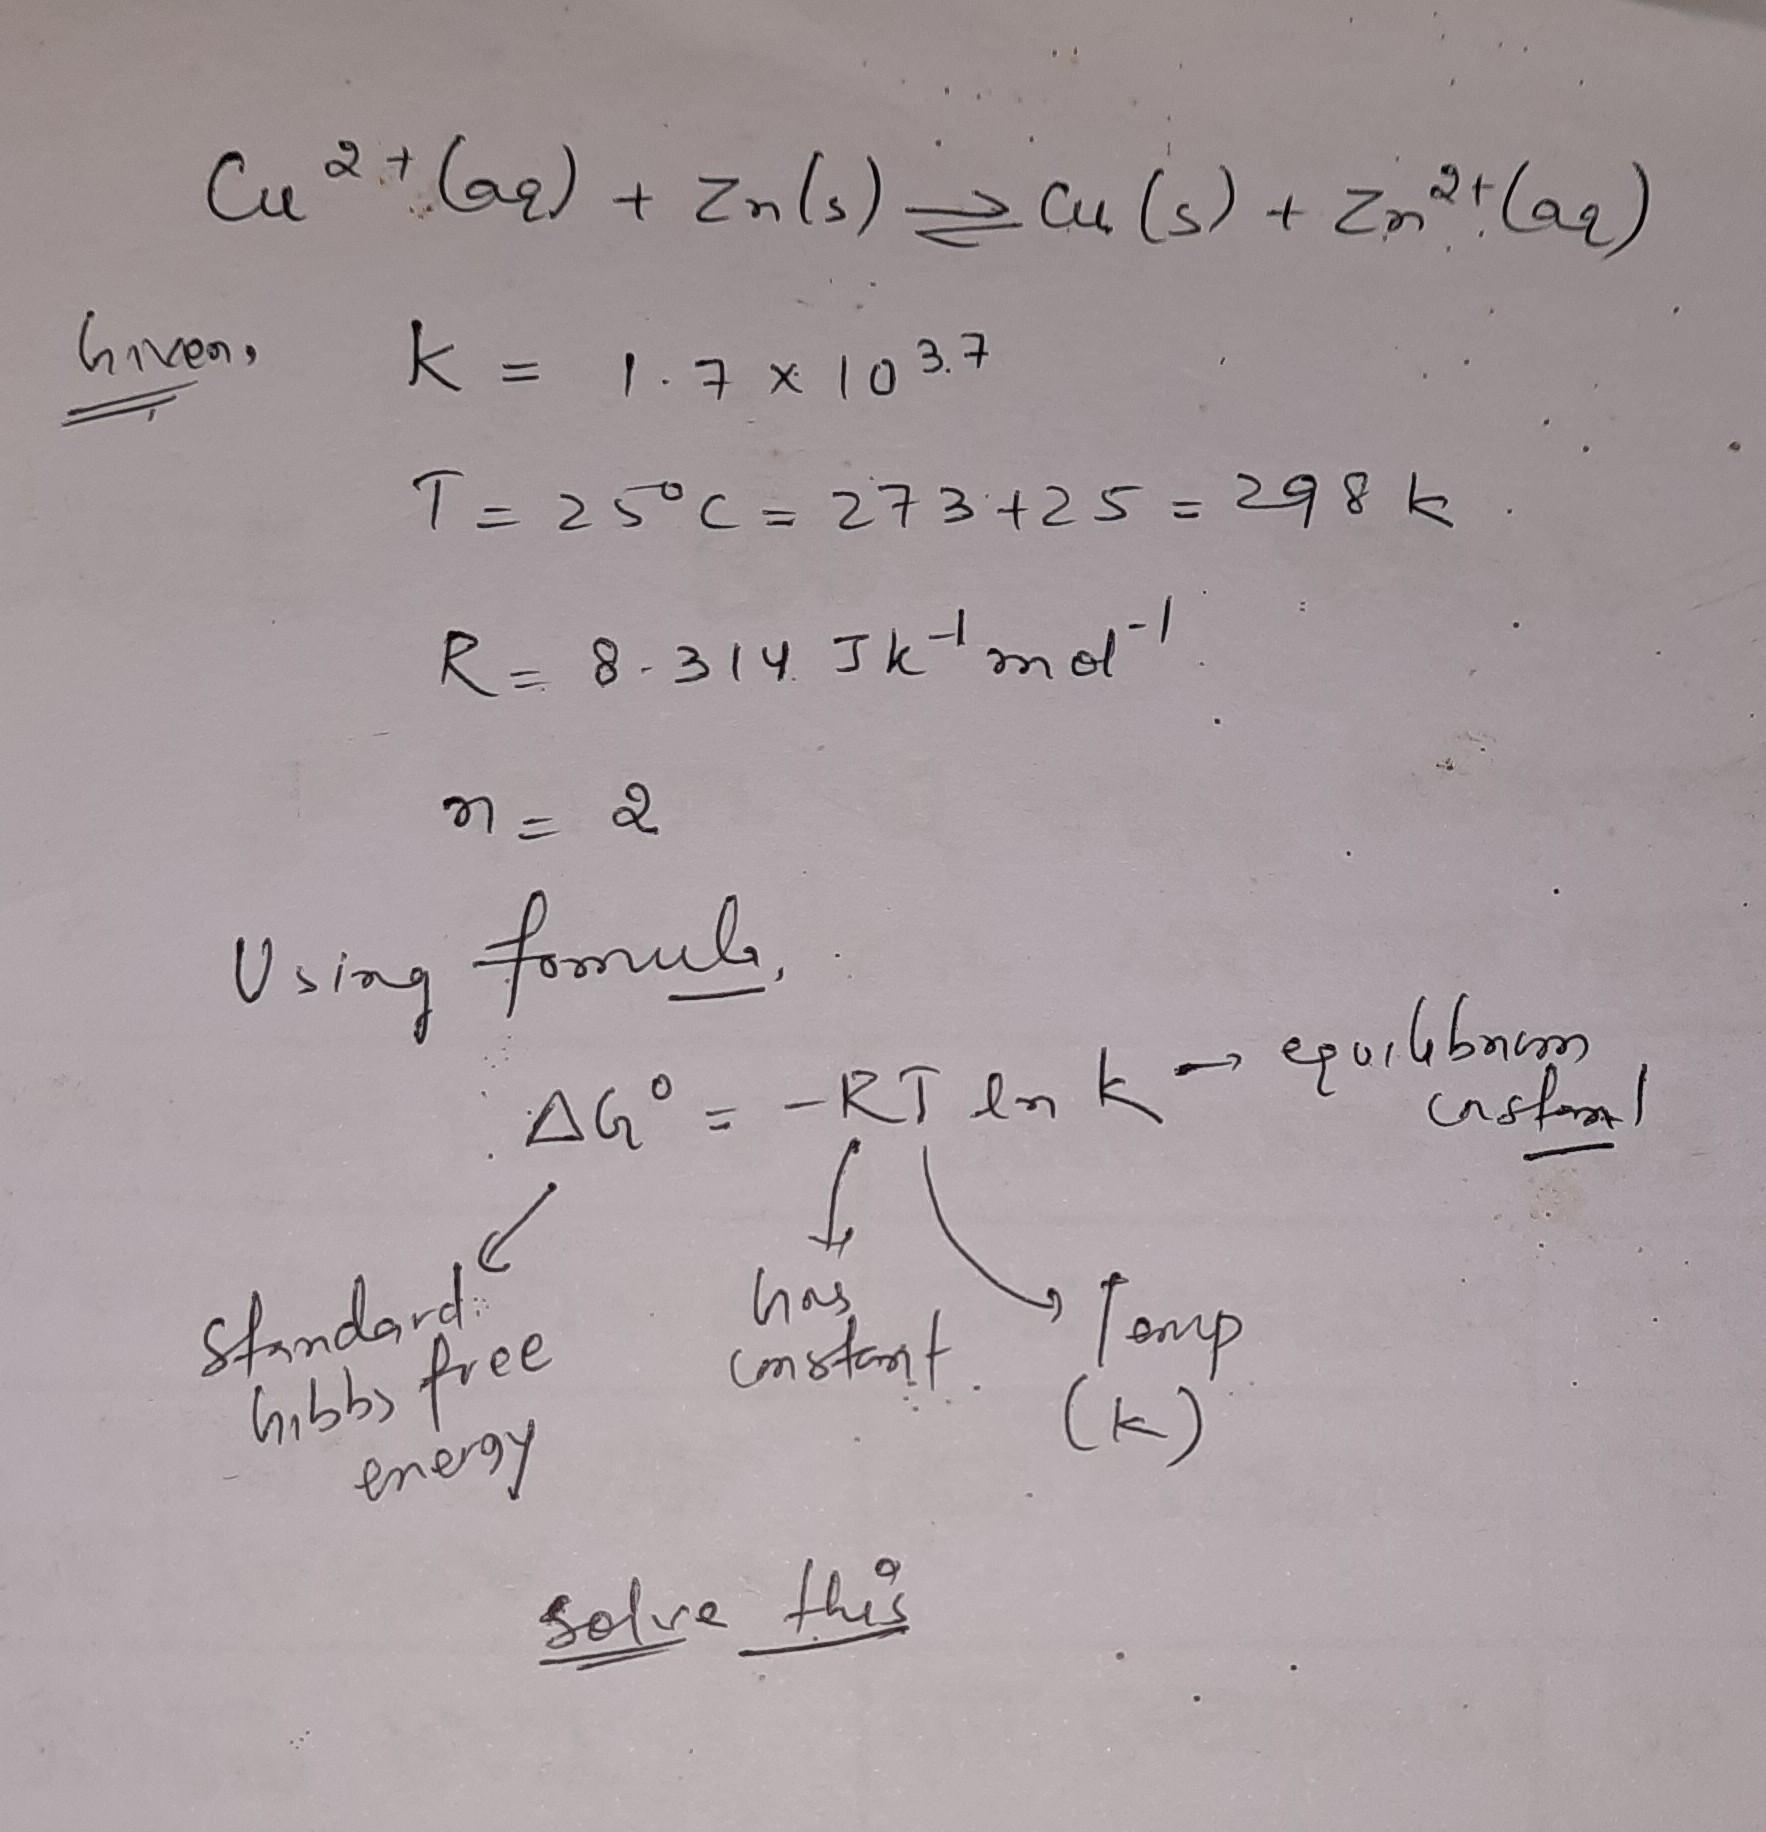 Cu²⁺(aq) + Zn(s) ⇌ Cu(s) + Zn²⁺(aq)
Given,
K = 1.7 x 10³·⁷
T = 25°C = 273+25 = 298 k.
R = 8.314 Jk⁻¹mol⁻¹.
n = 2
Using formula,
ΔG° = -RT ln k → equilibrium
constant
Standard
Gibbs free
energy
Gas
constant.
Temp
(k)
solve this